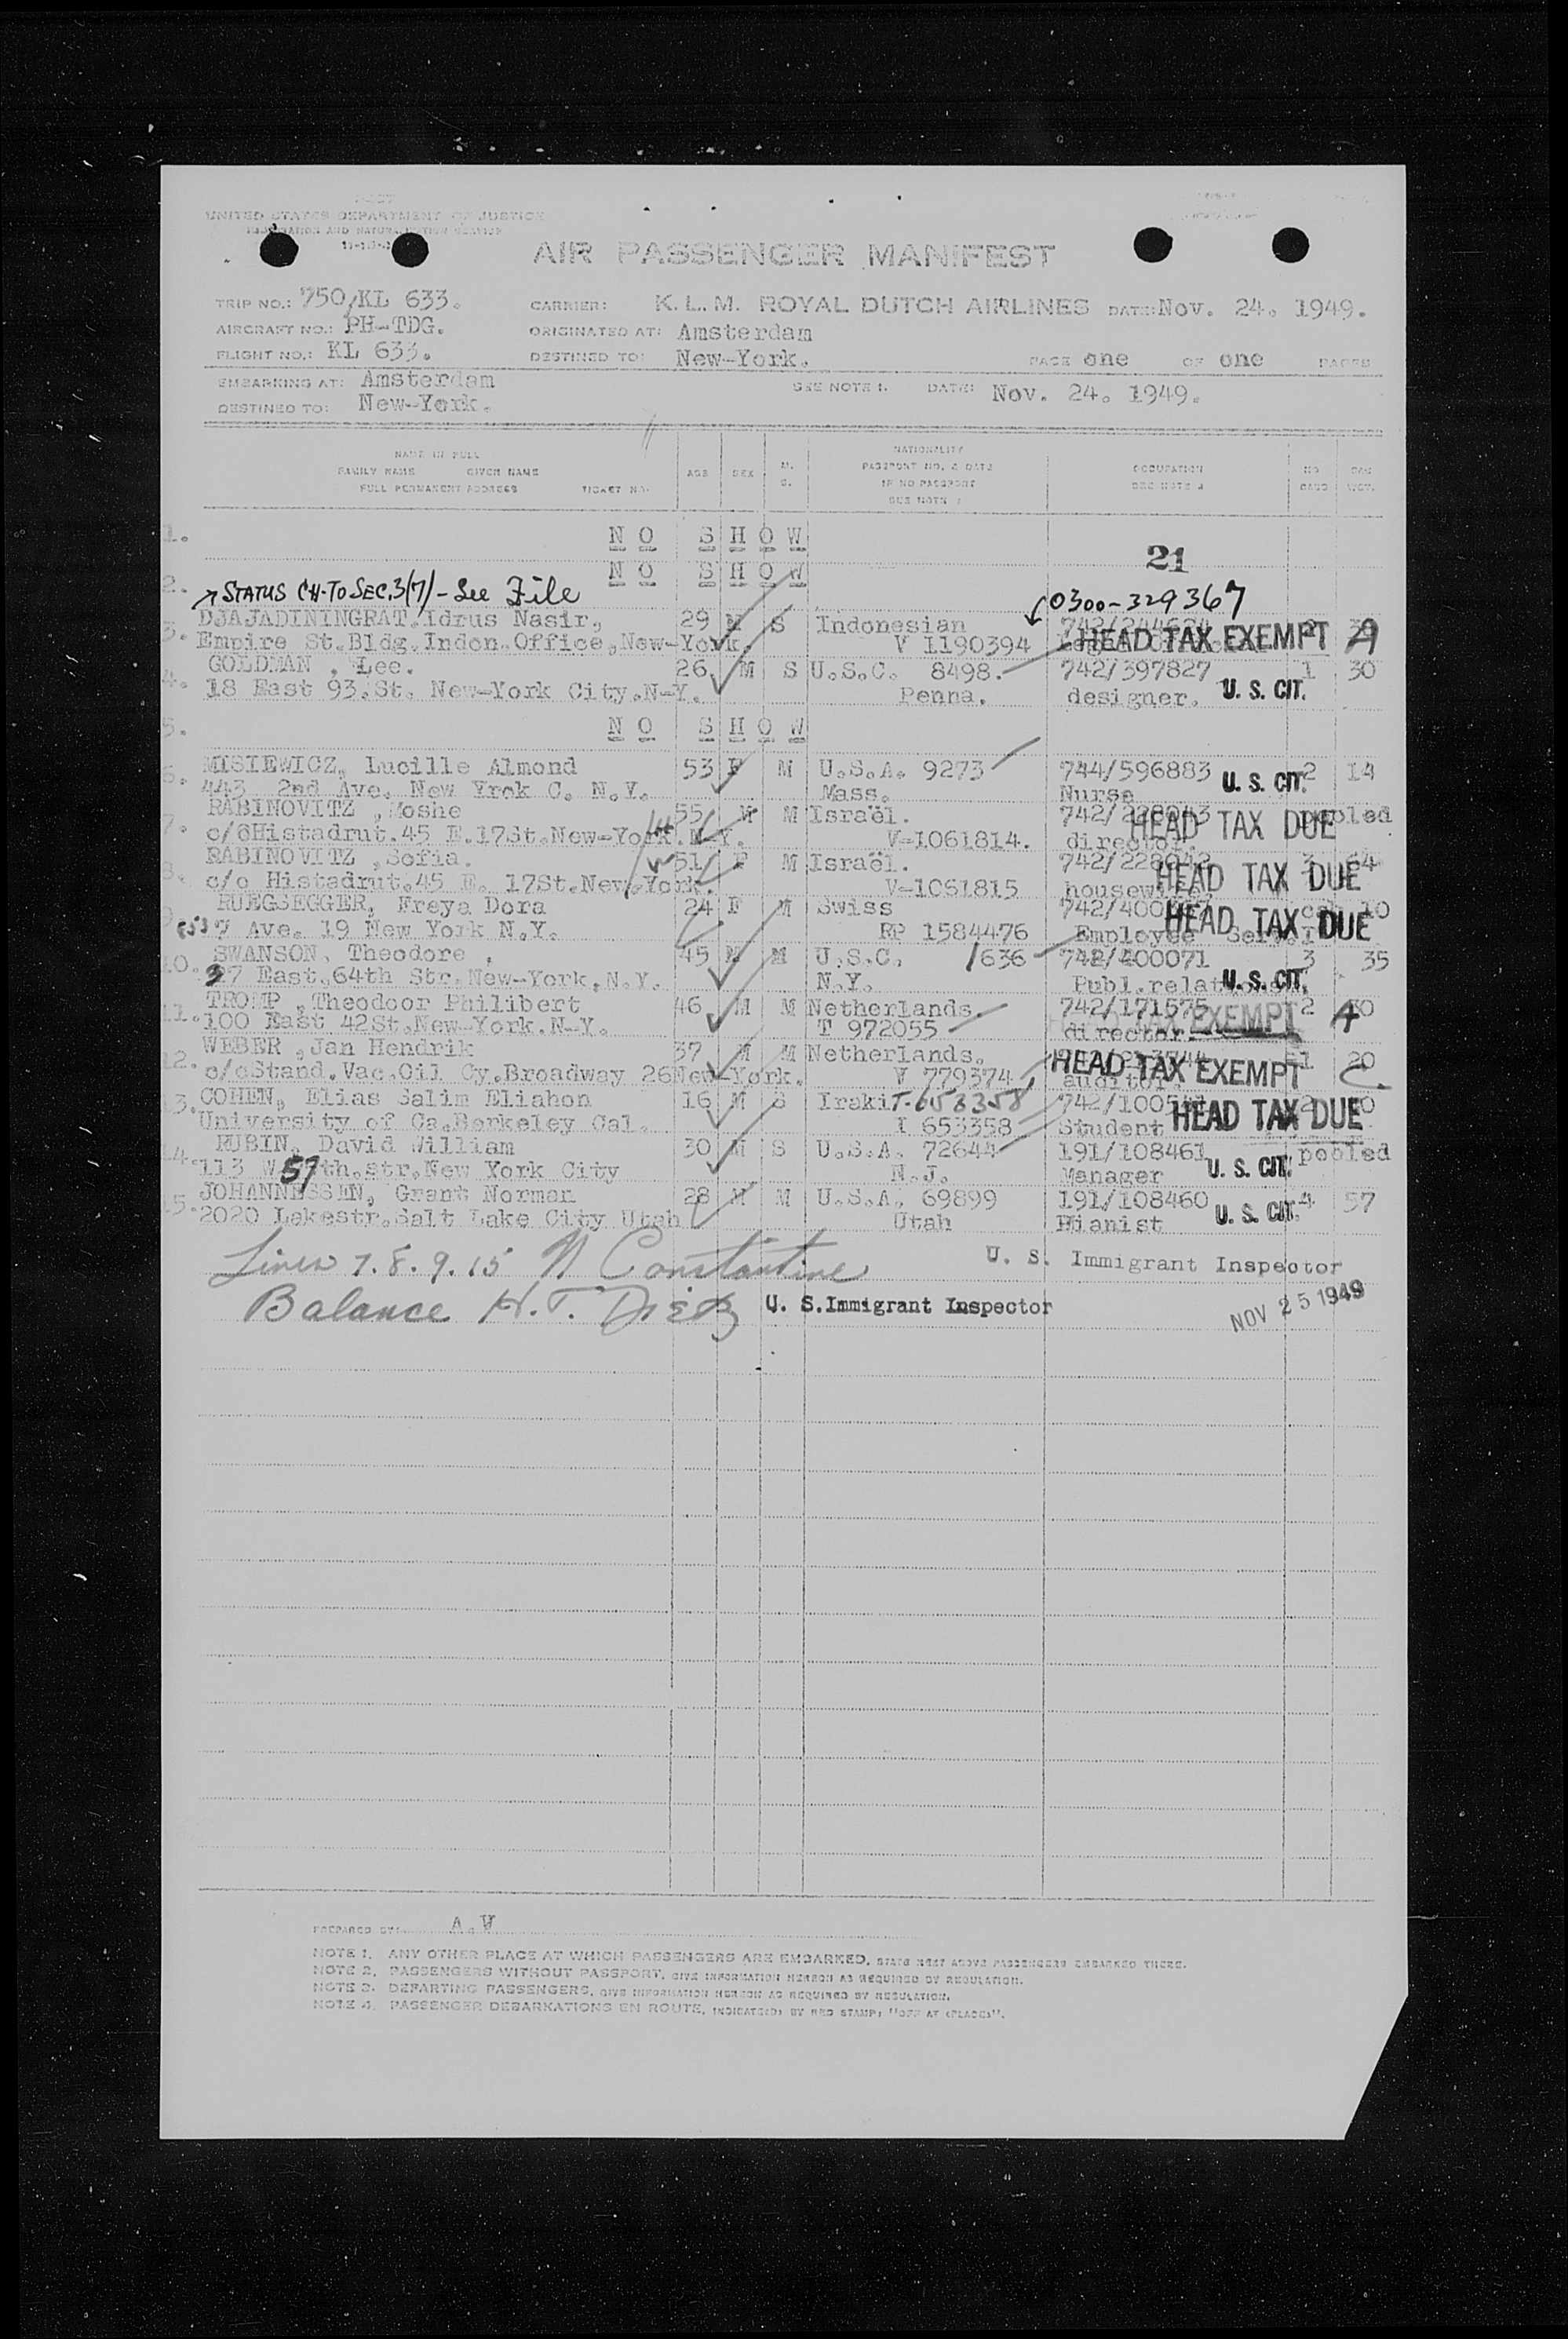 UNITED STATES DEPARTMENT OF JUSTICE
IMMIGRATION AND NATURALIZATION SERVICE
AIR PASSENGER MANIFEST
TRIP NO.: 750/KL 633. CARRIER: K. L. M. ROYAL DUTCH AIRLINES DATE: Nov. 24. 1949.
AIRCRAFT NO.: PH-TDG. ORIGINATED AT: Amsterdam
FLIGHT NO.: KL 633. DESTINED TO: New-York. PAGE one OF one PAGES
EMBARKING AT: Amsterdam SEE NOTE 1. DATE: Nov. 24. 1949.
DESTINED TO: New-York.
NAME IN FULL
FAMILY NAME GIVEN NAME
FULL PERMANENT ADDRESS TICKET NO.
AGE SEX M. S.
NATIONALITY
PASSPORT NO. & DATE
IF NO PASSPORT
SEE NOTE 2
OCCUPATION
SEE NOTE 3
1. N O S H O W
21
2. N O S H O W
STATUS CH. TO SEC. 3(7) - See File
0300-329367
3. DJAJADININGRAT. Idrus Nasir, 29 M S Indonesian 742/244624 2
Empire St.Bldg.Indon.Office,New-York. V 1190394 HEAD TAX EXEMPT A
4. GOLDMAN , Lee. 26 M S U.S.C. 8498. 742/397827 1 30
18 East 93.St. New-York City.N-Y. Penna. designer. U. S. CIT.
5. N O S H O W
6. MISIEWICZ, Lucille Almond 53 F M U.S.A. 9273 744/596883 U. S. CIT. 2 14
443 2nd Ave. New Yrok C. N.Y. Mass. Nurse
7. RABINOVITZ ,Moshe 55 M M Israël. 742/228943 pooled
c/o Histadrut.45 E.17St.New-York.N.Y. V-1061814. director. HEAD TAX DUE
8. RABINOVITZ ,Sofia. 51 F M Israël. 742/228942 3 64
c/o Histadrut.45 E. 17St.New-York. V-1061815 housewife HEAD TAX DUE
9. RUEGSEGGER, Freya Dora 24 F M Swiss 10
853 7 Ave. 19 New York N.Y. RP 1584476 Employee HEAD TAX DUE
10. SWANSON, Theodore . 45 M M U.S.C. 1636 742/400071 3 35
37 East.64th Str.New-York.N.Y. N.Y. Publ.relations U. S. CIT.
11. TROMP ,Theodoor Philibert 46 M M Netherlands. 742/171575 2 30
100 East 42St.New-York.N-Y. T 972055 director. EXEMPT A
12. WEBER ,Jan Hendrik 37 M M Netherlands. 1 20
c/o Stand.Vac.Oil Cy.Broadway 26 New-York. V 779374 auditor HEAD TAX EXEMPT
13. COHEN, Elias Salim Eliahon 16 M S Iraki T-658358 2
University of Ca.Berkeley Cal. I 653358 Student HEAD TAX DUE
14. RUBIN, David William 30 M S U.S.A. 72644 191/108461 pooled
113 W 57th.str.New York City N.J. Manager U. S. CIT.
15. JOHANNESSEN, Grant Norman 28 M M U.S.A. 69899 191/108460 4 57
2020 Lakestr.Salt Lake City Utah Utah Pianist U. S. CIT.
Lines 7. 8. 9. 15 N Constantine U. S. Immigrant Inspector
Balance H. T. Dietz U. S. Immigrant Inspector NOV 25 1949
PREPARED BY: A.W
NOTE 1. ANY OTHER PLACE AT WHICH PASSENGERS ARE EMBARKED, STATE NEXT ABOVE PASSENGERS EMBARKED THERE.
NOTE 2. PASSENGERS WITHOUT PASSPORT, GIVE INFORMATION HEREON AS REQUIRED BY REGULATION.
NOTE 3. DEPARTING PASSENGERS, GIVE INFORMATION HEREON AS REQUIRED BY REGULATION.
NOTE 4. PASSENGER DEBARKATIONS EN ROUTE, INDICATE(D) BY RED STAMP: "OFF AT (PLACE)".